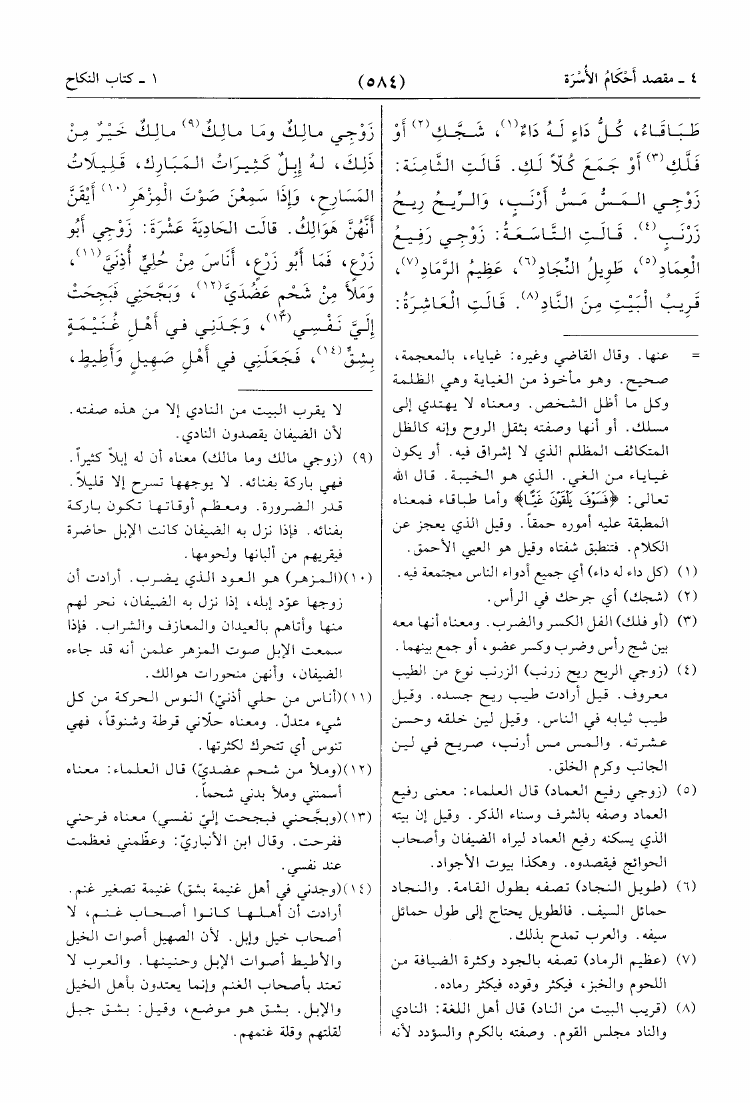 ٤ - مقصد أَحْكَامُ الأُسْرَة
(٥٨٤)
١ - كتاب النكاح
طَبَاقَاءُ، كُلُّ دَاءٍ لَهُ دَاءٌ(١)، شَجَّكِ(٢) أَوْ
فَلَّكِ(٣) أَوْ جَمَعَ كُلًّا لَكِ. قَالَتِ الثَّامِنَة:
زَوْجِي المَسُّ مَسُّ أَرْنَبٍ، وَالرِّيحُ رِيحُ
زَرْنَبٍ(٤). قَالَتِ التَّاسَعَةُ: زَوْجِي رَفِيعُ
الْعِمَادِ(٥)، طَوِيلُ النِّجَادِ(٦)، عَظِيمُ الرَّمَادِ(٧)،
قَرِيبُ الْبَيْتِ مِنَ النَّادِ(٨). قَالَتِ الْعَاشِرَةُ:
= عنها. وقال القاضي وغيره: غياياء، بالمعجمة،
صحيح. وهو مأخوذ من الغياية وهي الظلمة
وكل ما أظل الشخص. ومعناه لا يهتدي إلى
مسلك. أو أنها وصفته بثقل الروح وإنه كالظل
المتكاثف المظلم الذي لا إشراق فيه. أو يكون
غياياء من الغي. الذي هو الخيبة. قال الله
تعالى: ﴿فَسَوْفَ يَلْقَوْنَ غَيًّا﴾ وأما طباقاء فمعناه
المطبقة عليه أموره حمقاً. وقيل الذي يعجز عن
الكلام. فتنطبق شفتاه وقيل هو العيي الأحمق.
(١) (كل داء له داء) أي جميع أدواء الناس مجتمعة فيه.
(٢) (شجك) أي جرحك في الرأس.
(٣) (أو فلك) الفل الكسر والضرب. ومعناه أنها معه
بين شج رأس وضرب وكسر عضو، أو جمع بينهما.
(٤) (زوجي الريح ريح زرنب) الزرنب نوع من الطيب
معروف. قيل أرادت طيب ريح جسده. وقيل
طيب ثيابه في الناس. وقيل لين خلقه وحسن
عشرته. والمس مس أرنب، صريح في لين
الجانب وكرم الخلق.
(٥) (زوجي رفيع العماد) قال العلماء: معنى رفيع
العماد وصفه بالشرف وسناء الذكر. وقيل إن بيته
الذي يسكنه رفيع العماد ليراه الضيفان وأصحاب
الحوائج فيقصدوه. وهكذا بيوت الأجواد.
(٦) (طويل النجاد) تصفه بطول القامة. والنجاد
حمائل السيف. فالطويل يحتاج إلى طول حمائل
سيفه. والعرب تمدح بذلك.
(٧) (عظيم الرماد) تصفه بالجود وكثرة الضيافة من
اللحوم والخبز، فيكثر وقوده فيكثر رماده.
(٨) (قريب البيت من الناد) قال أهل اللغة: النادي
والناد مجلس القوم. وصفته بالكرم والسؤدد لأنه
زَوْجِي مالِكٌ وَما مالِكٌ(٩) مالِكٌ خَيْرٌ مِنْ
ذلِكَ، لهُ إبِلٌ كَثِيرَاتُ المَبَارِك، قَلِيلَاتُ
المَسَارِحِ، وَإذَا سَمِعْنَ صَوْتَ الْمِزْهَرِ(١٠) أَيْقَنَّ
أَنَّهُنَّ هَوَالِكُ. قالَت الحَادِيَةَ عَشْرَةَ: زَوْجِي أَبُو
زَرْعٍ، فَمَا أَبُو زَرْعٍ، أَنَاسَ مِنْ حُلِيٍّ أُذُنَيَّ(١١)،
وَمَلأَ مِنْ شَحْمِ عَضُدَيَّ(١٢)، وَبَجَّحَنِي فَبَجِحَتْ
إلَيَّ نَفْسِي(١٣)، وَجَدَنِي في أَهْلِ غُنَيْمَةٍ
بِشِقٍّ(١٤)، فَجَعَلَنِي في أَهْلِ صَهِيلٍ وَأَطِيطٍ،
لا يقرب البيت من النادي إلا من هذه صفته.
لأن الضيفان يقصدون النادي.
(٩) (زوجي مالك وما مالك) معناه أن له إبلاً كثيراً.
فهي باركة بفنائه. لا يوجهها تسرح إلا قليلاً.
قدر الضرورة. ومعظم أوقاتها تكون باركة
بفنائه. فإذا نزل به الضيفان كانت الإبل حاضرة
فيقريهم من ألبانها ولحومها.
(١٠) (المزهر) هو العود الذي يضرب. أرادت أن
زوجها عوّد إبله، إذا نزل به الضيفان، نحر لهم
منها وأتاهم بالعيدان والمعازف والشراب. فإذا
سمعت الإبل صوت المزهر علمن أنه قد جاءه
الضيفان، وأنهن منحورات هوالك.
(١١) (أناس من حلي أذنيّ) النوس الحركة من كل
شيء متدلّ. ومعناه حلّاني قرطة وشنوقاً، فهي
تنوس أي تتحرك لكثرتها.
(١٢) (وملأ من شحم عضديّ) قال العلماء: معناه
أسمنني وملأ بدني شحماً.
(١٣) (وبجّحني فبجحت إليّ نفسي) معناه فرحني
ففرحت. وقال ابن الأنباريّ: وعظّمني فعظمت
عند نفسي.
(١٤) (وجدني في أهل غنيمة بشق) غنيمة تصغير غنم.
أرادت أن أهلها كانوا أصحاب غنم، لا
أصحاب خيل وإبل. لأن الصهيل أصوات الخيل
والأطيط أصوات الإبل وحنينها. والعرب لا
تعتد بأصحاب الغنم وإنما يعتدون بأهل الخيل
والإبل. بشق هو موضع، وقيل: بشق جبل
لقلتهم وقلة غنمهم.